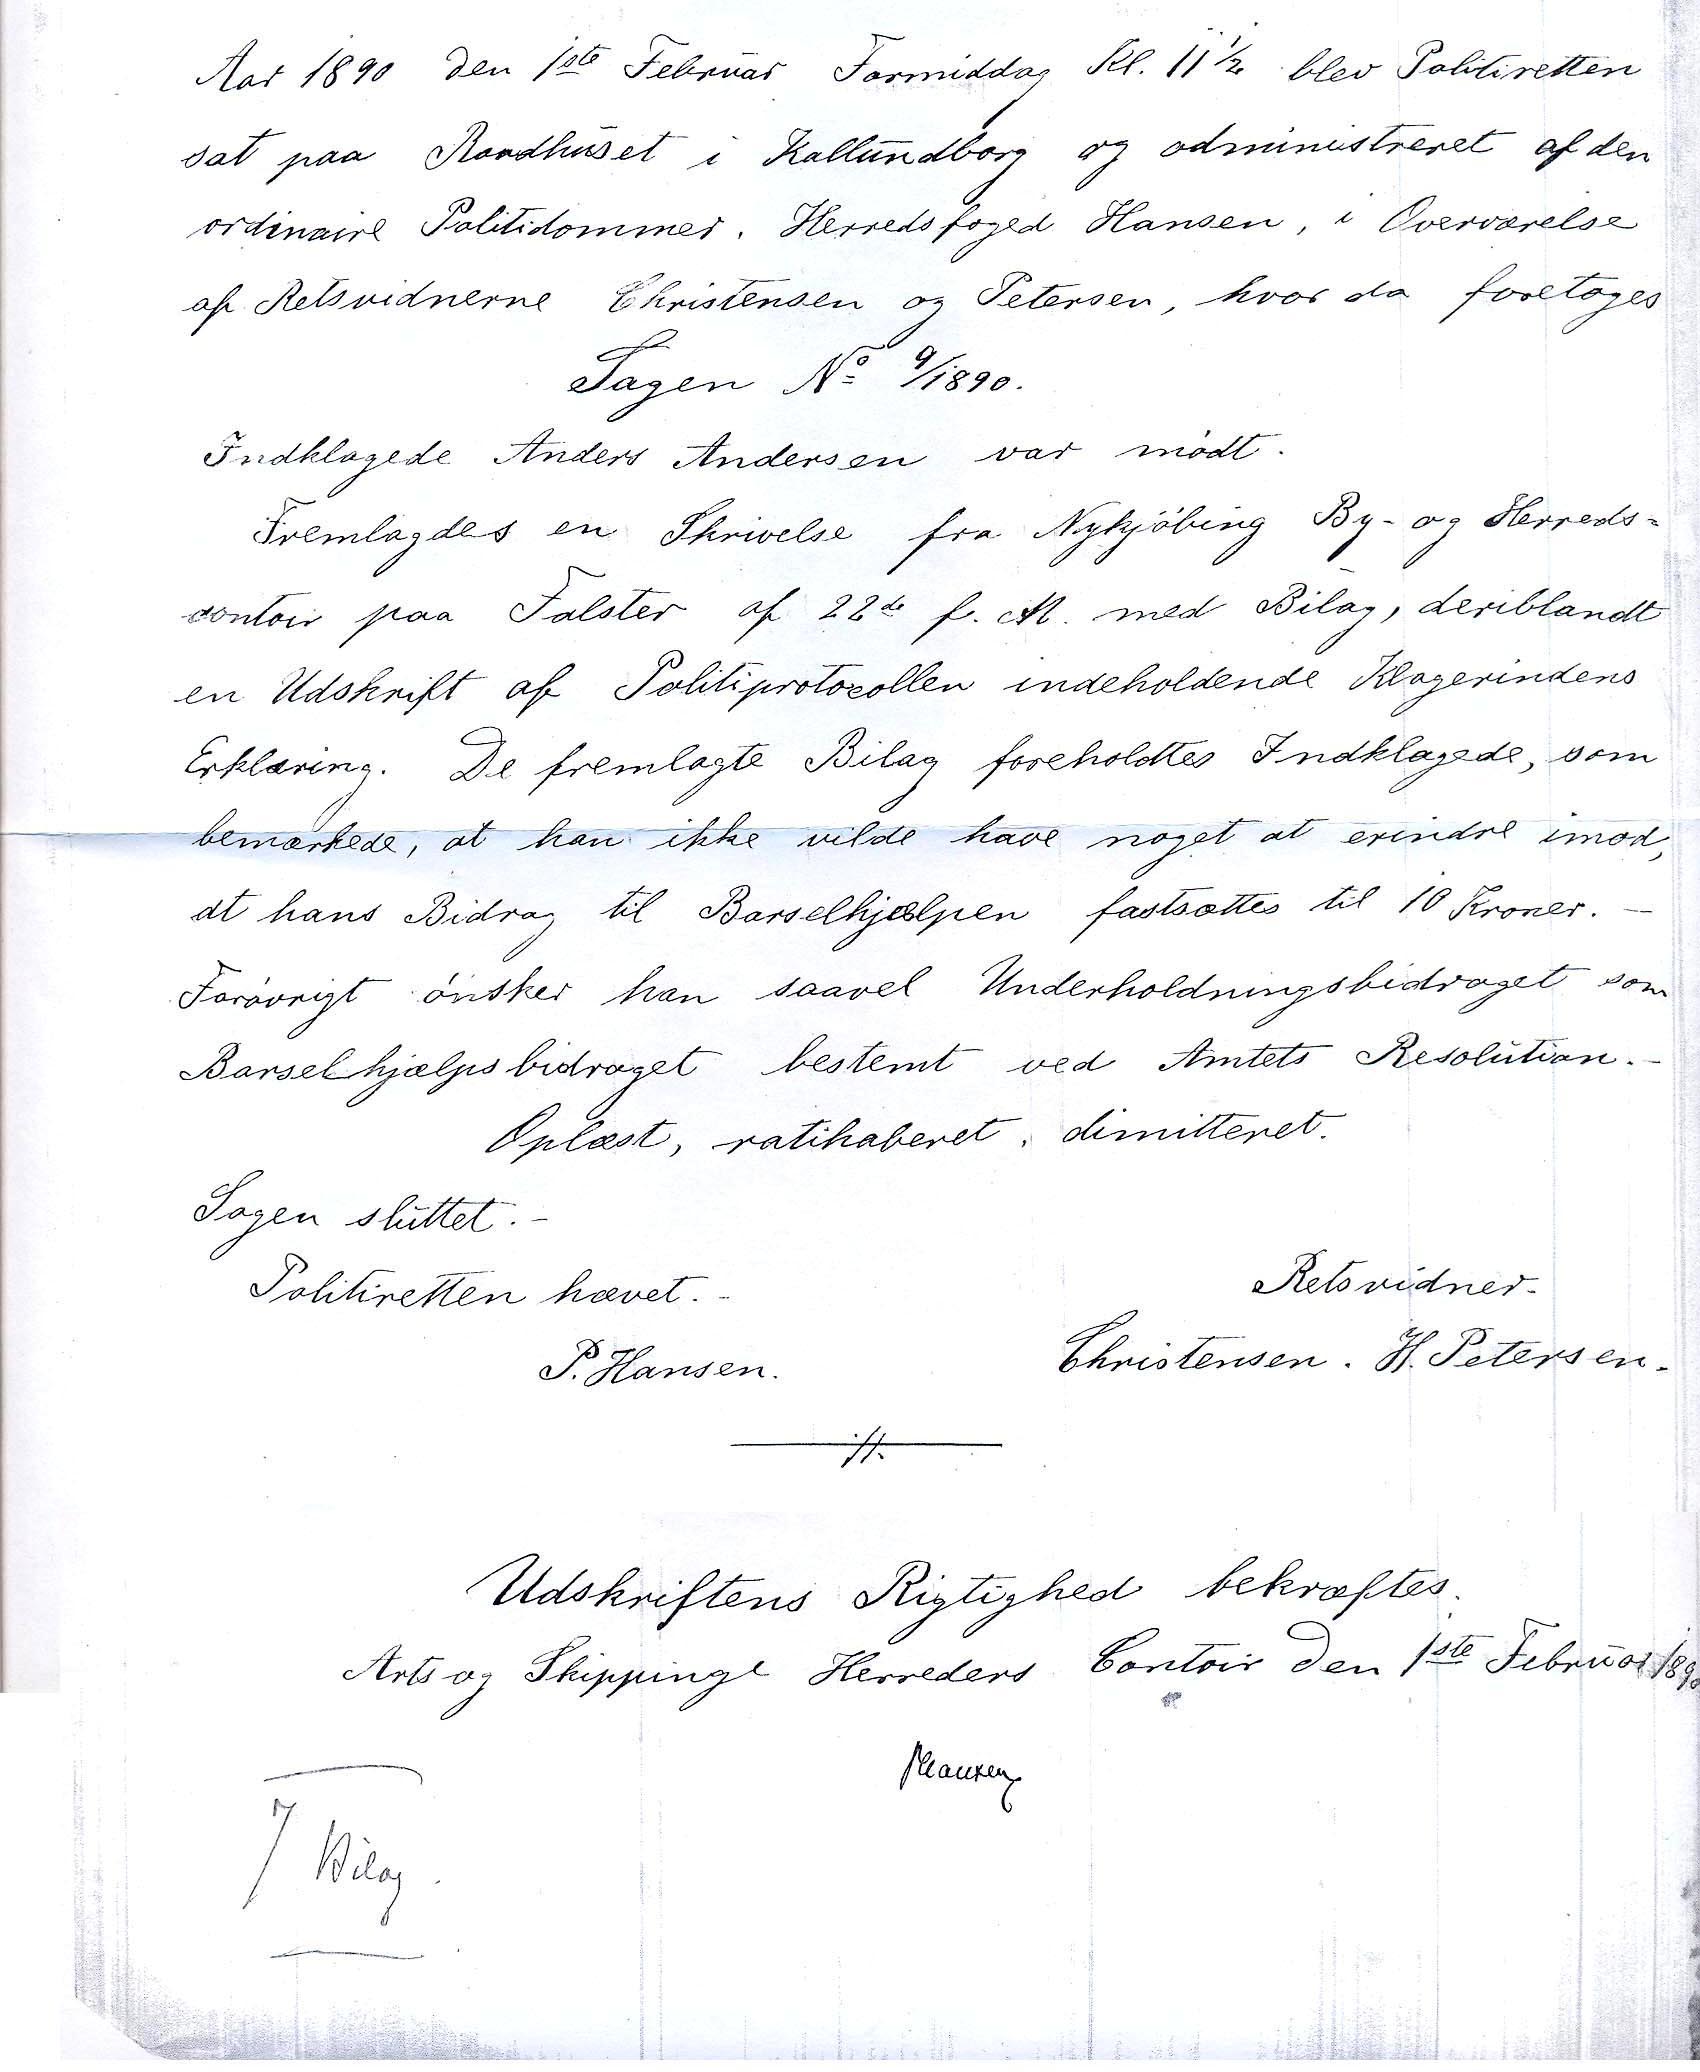 Aar 1890 den 1ste Februar Formiddag Kl. 11 1/2 blev Politiretten
sat paa Raadhuset i Kallundborg og administreret af den
ordinaire Politidommer, Herredsfoged Hansen, i Overværelse
af Retsvidnerne Christensen og Petersen, hvor da foretoges
Sagen No 9/1890.
Indklagede Anders Andersen var mødt.
Fremlagdes en Skrivelse fra Nykjøbing By- og Herreds-
contoir paa Falster af 22de f. M. med Bilag, deriblandt
en Udskrift af Politiprotocollen indeholdende Klagerindens
Erklæring. De fremlagte Bilag foreholdtes Indklagede, som
bemærkede, at han ikke vilde have noget at erindre imod,
at hans Bidrag til Barselhjælpen fastsættes til 10 Kroner. —
Forøvrigt ønsker han saavel Underholdningsbidraget som
Barselhjælpsbidraget bestemt ved Amtets Resolution. -
Oplæst, ratihaberet, dimitteret.
Sagen sluttet. -
Politiretten hævet. -
Retsvidner.
P. Hansen.
Christensen. H. Petersen.
Udskriftens Rigtighed bekræftes.
Arts og Skippinge Herreders Contoir den 1ste Februar 1890
PHansen
7 Bilag.